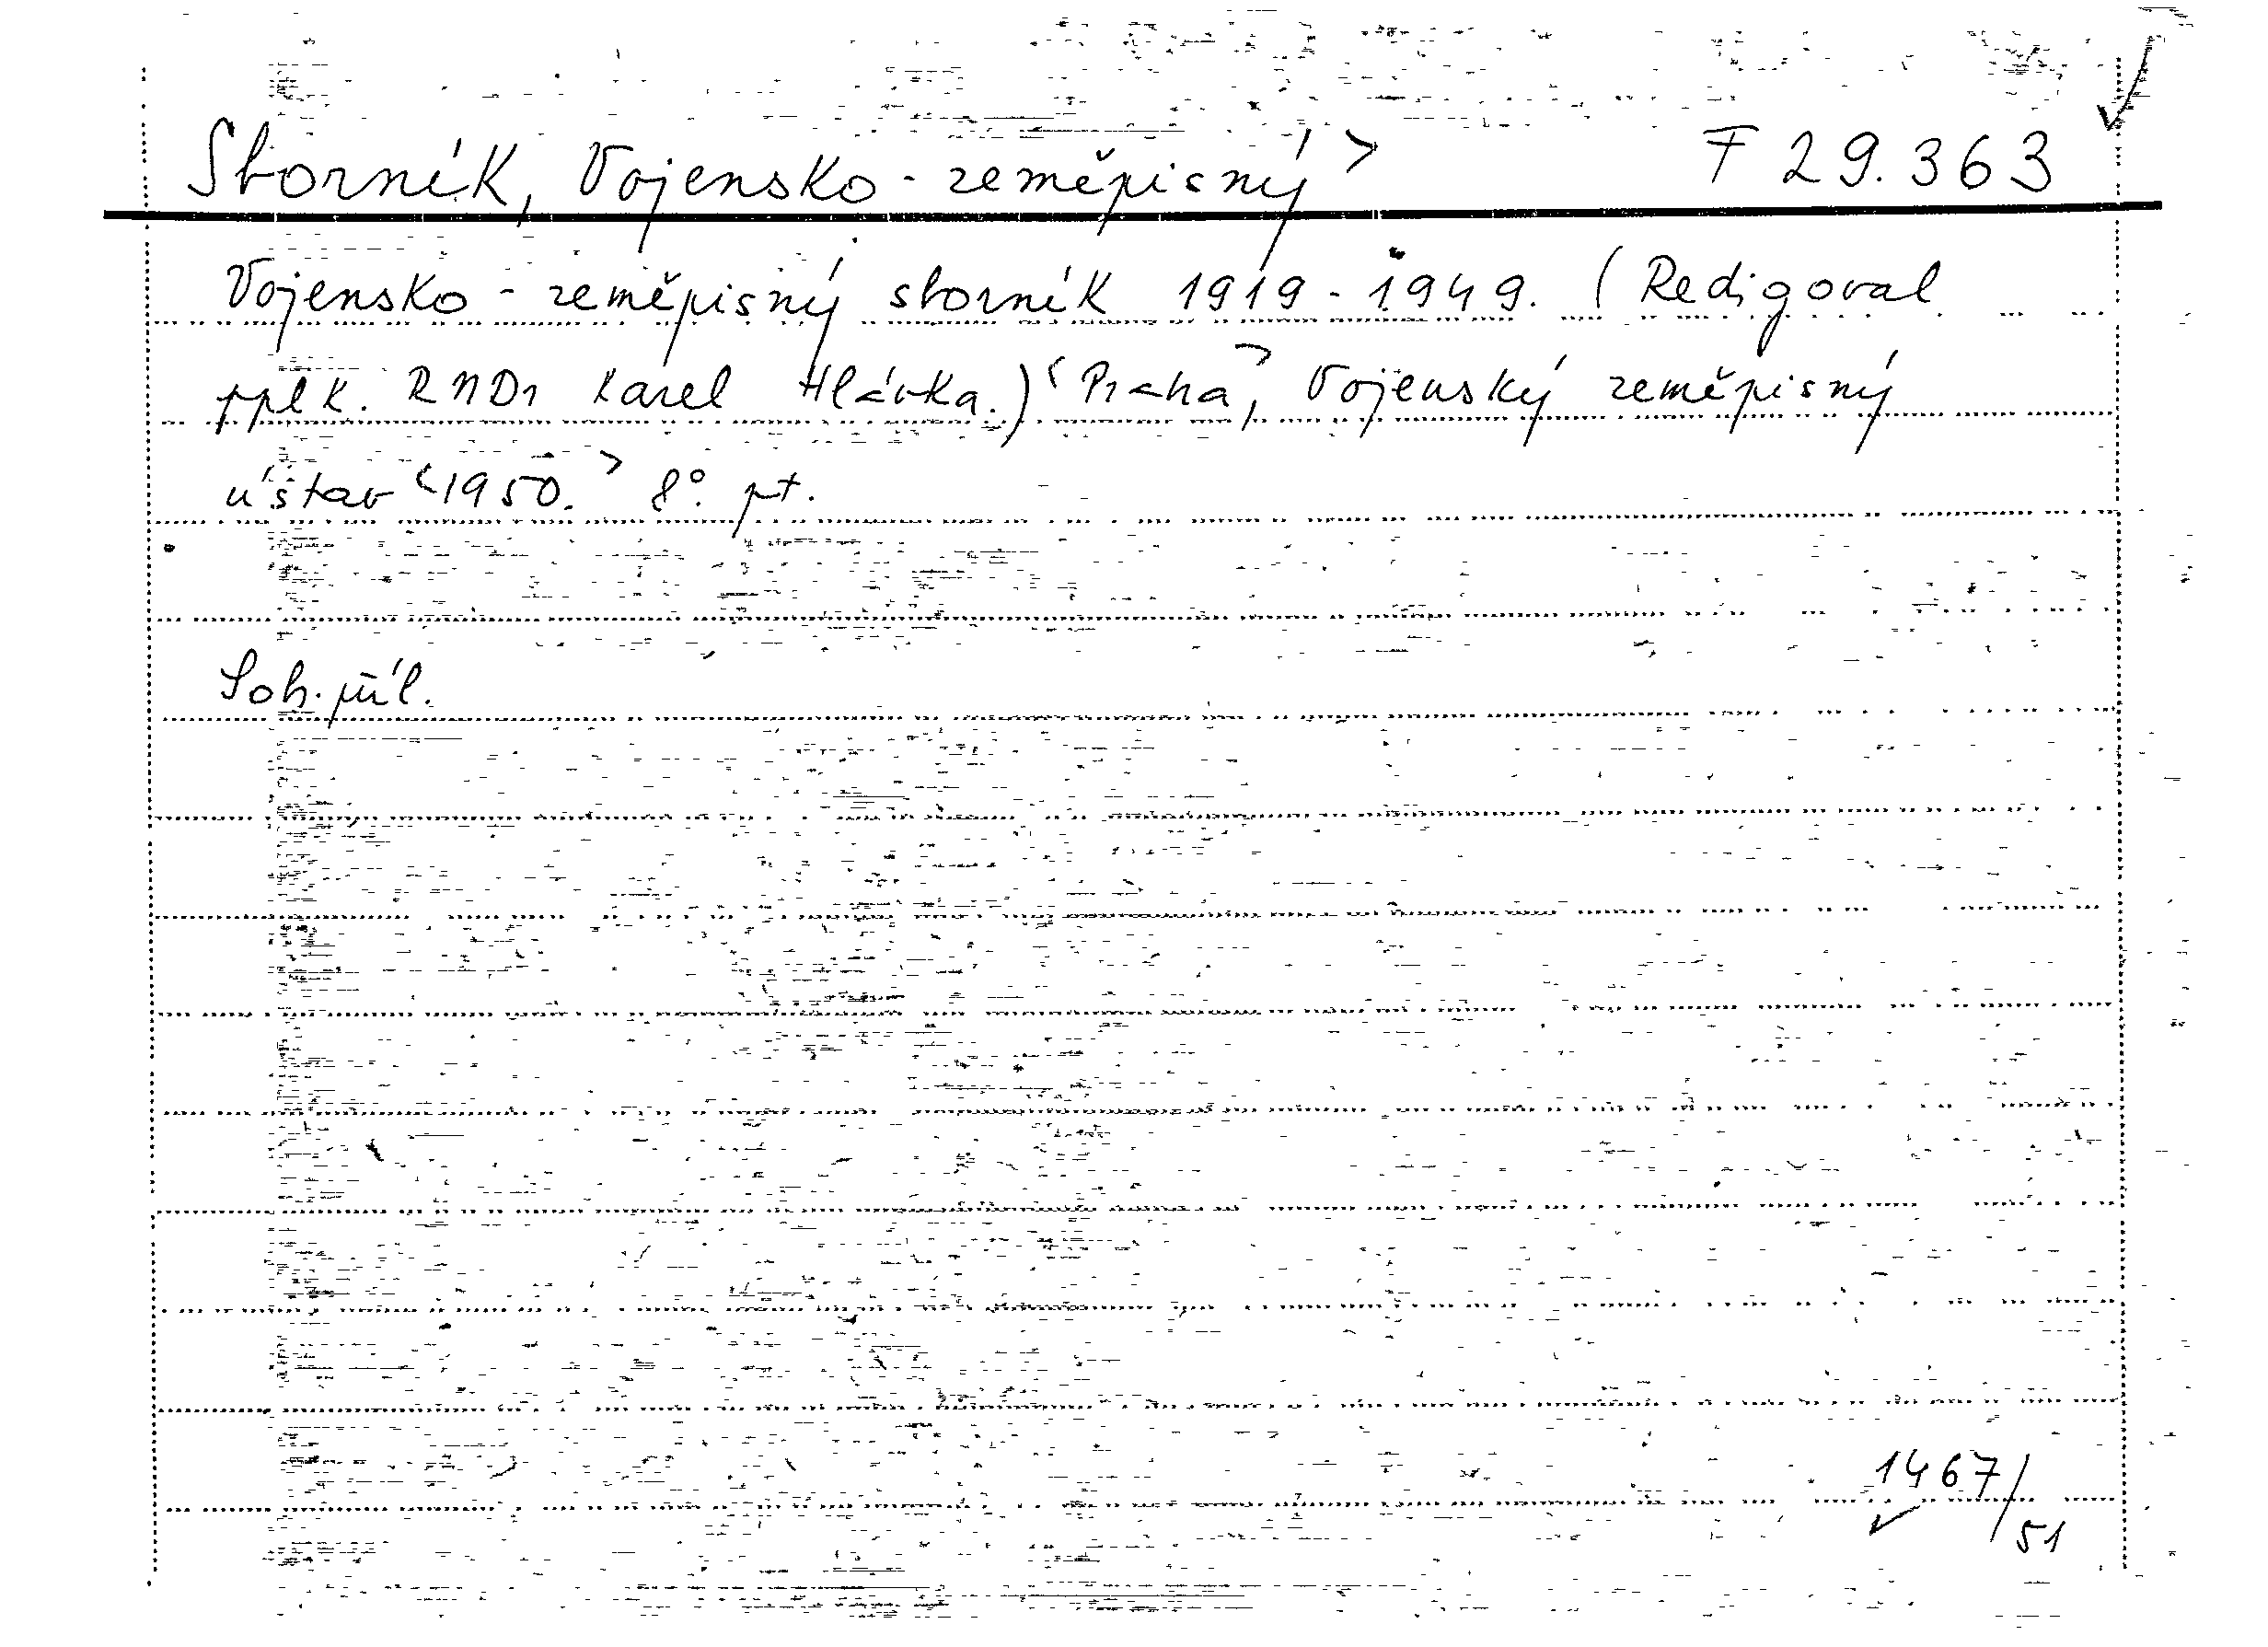 Sborník, Vojensko-zeměpisný> F 29.363
Vojensko-zeměpisný sborník 1919-1949. (Redigoval
pplk. RNDr Karel Hlávka.) <Praha>, Vojenský zeměpisný
ústav <1950.> 8°. pt.
Sob. příl.
1467/51